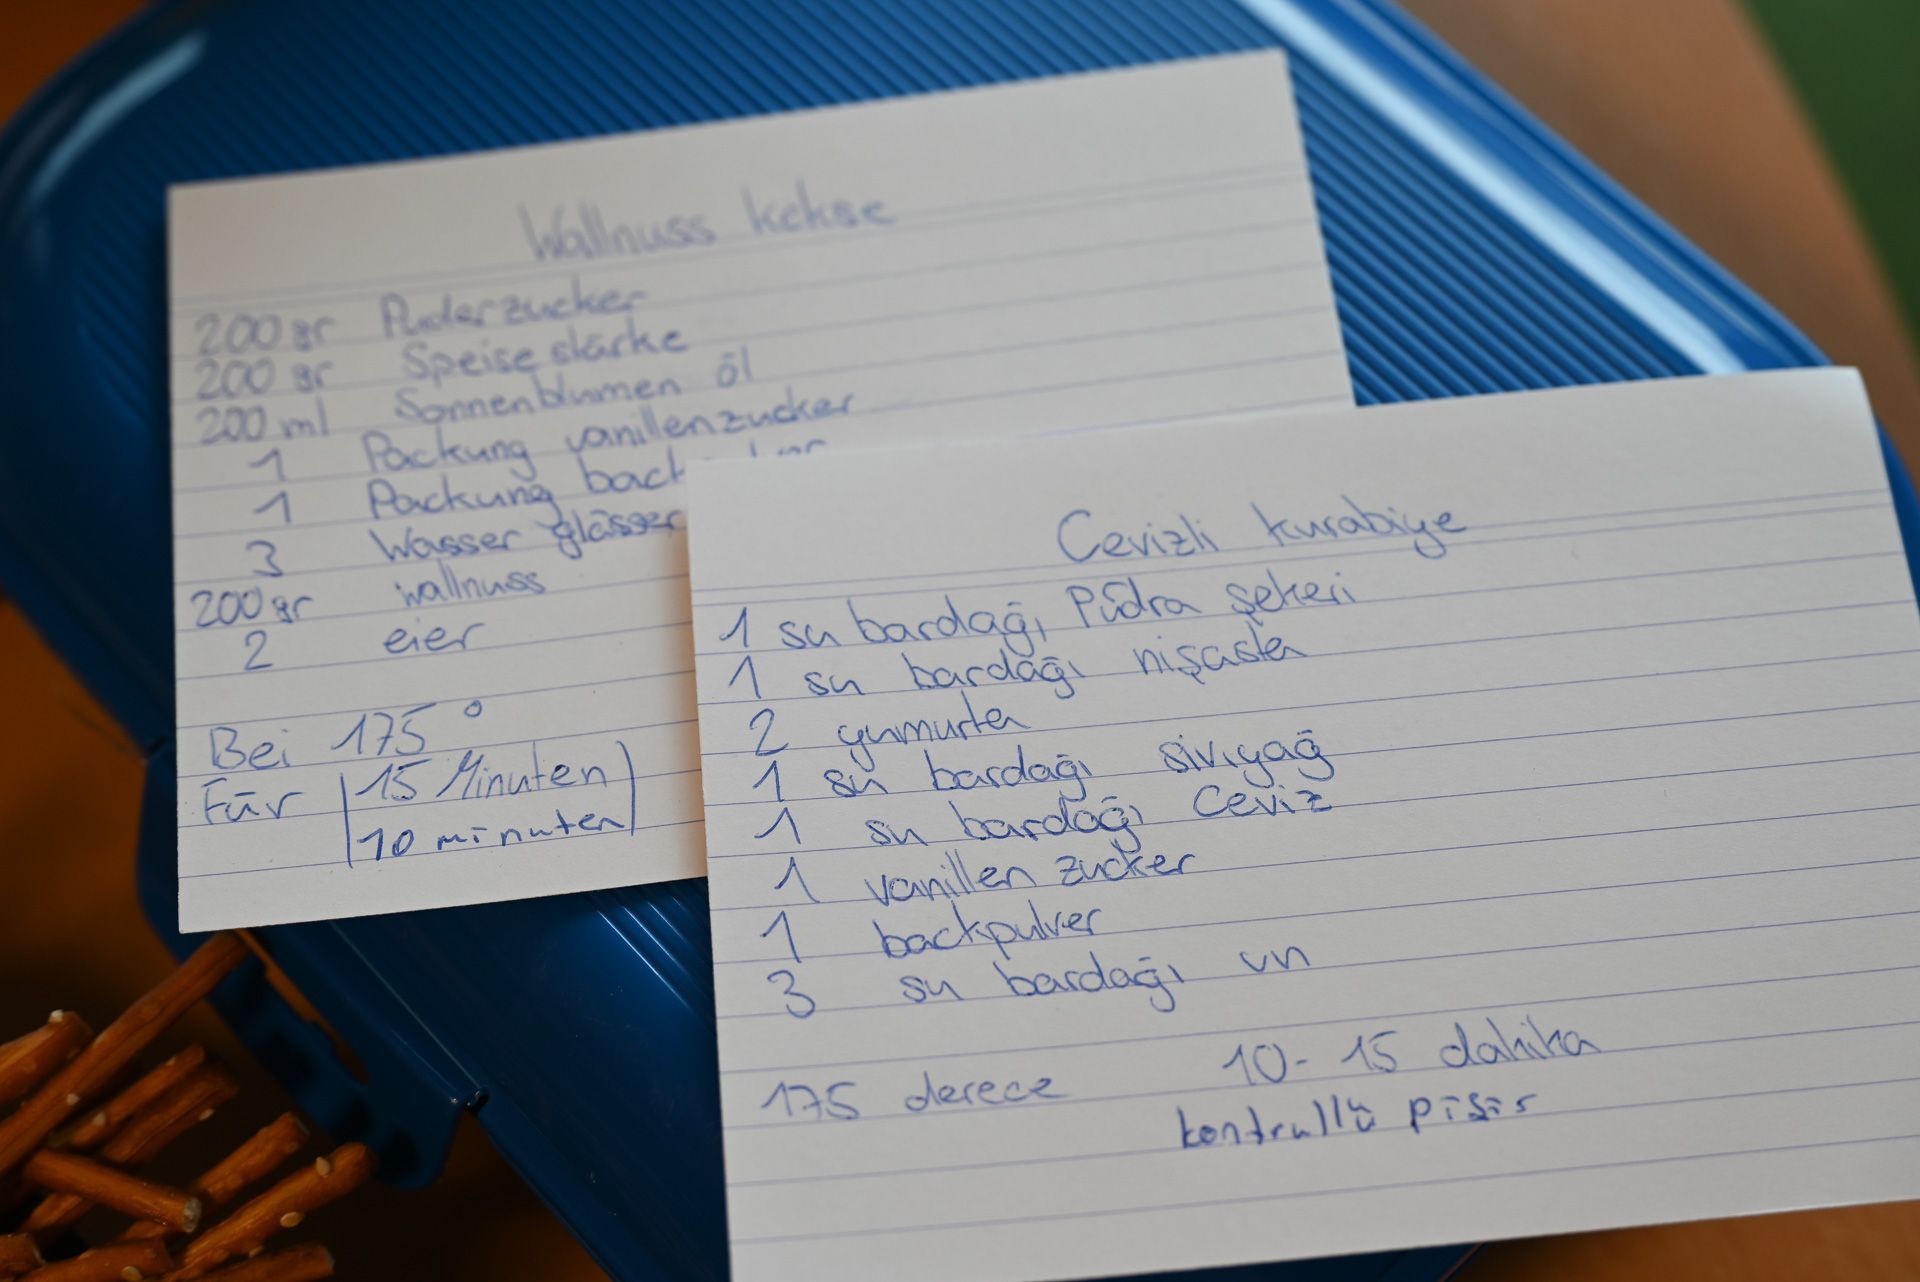 Wallnuss kekse
200 gr Puderzucker
200 gr Speise stärke
200 ml Sonnenblumen öl
1 Packung vanillenzucker
1 Packung
3 Wasser glässer
200 gr wallnuss
2 eier
Bei 175°
Für (15 Minuten
10 minuten)
Cevizli kurabiye
1 su bardağı Püdra şekeri
1 su bardağı nişasta
2 yumurta
1 su bardağı sıvıyağ
1 su bardağı Ceviz
1 vanillen zucker
1 backpulver
3 su bardağı un
175 derece 10-15 dakika
kontrullü pişir